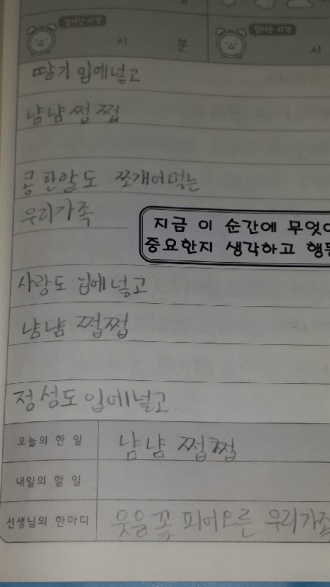 시 분
시
딸기 입에넣고
냠냠 쩝쩝
콩 한알도 쪼개어먹는
우리가족
지금 이 순간에 무엇이
중요한지 생각하고 행동
사랑도 입에넣고
냠냠 쩝쩝
정성도입에넣고
오늘의 한 일 냠냠 쩝쩝
내일의 할 일
선생님의 한마디 웃음꽃 피어오른 우리가족